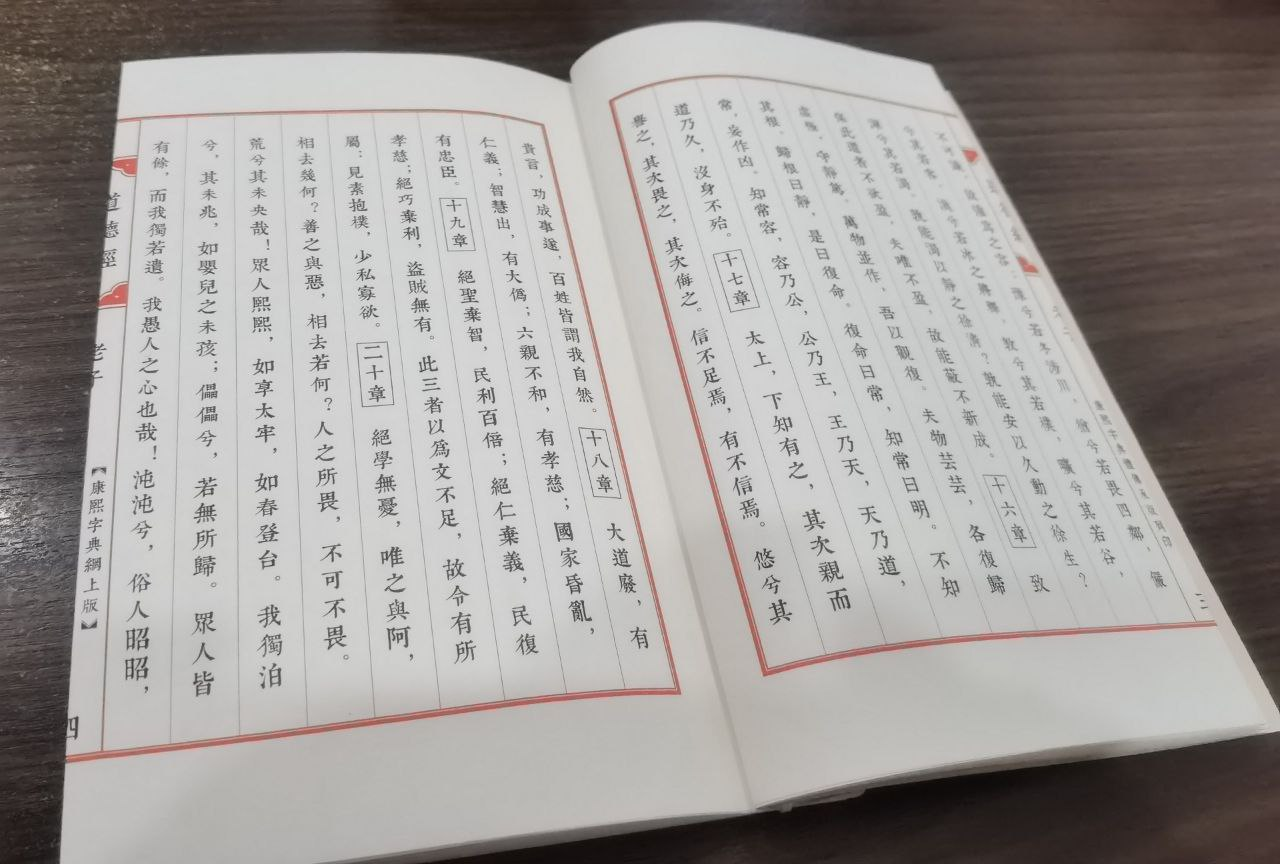 道德經 老子
康熙字典體
三
不可識，故強爲之容：豫兮若冬涉川，猶兮若畏四鄰，儼
兮其若客，渙兮若冰之將釋，敦兮其若樸，曠兮其若谷，
渾兮其若濁，孰能濁以靜之徐清？孰能安以久動之徐生？
保此道者不欲盈，夫唯不盈，故能蔽不新成。十六章 致
虛極，守靜篤。萬物並作，吾以觀復。夫物芸芸，各復歸
其根。歸根曰靜，是曰復命。復命曰常，知常曰明。不知
常，妄作凶。知常容，容乃公，公乃王，王乃天，天乃道，
道乃久，沒身不殆。十七章 太上，下知有之，其次親而
譽之，其次畏之，其次侮之。信不足焉，有不信焉。悠兮其
貴言，功成事遂，百姓皆謂我自然。十八章 大道廢，有
仁義；智慧出，有大僞；六親不和，有孝慈；國家昏亂，
有忠臣。十九章 絕聖棄智，民利百倍；絕仁棄義，民復
孝慈；絕巧棄利，盜賊無有。此三者以爲文不足，故令有所
屬：見素抱樸，少私寡欲。二十章 絕學無憂，唯之與阿，
相去幾何？善之與惡，相去若何？人之所畏，不可不畏。
荒兮其未央哉！眾人熙熙，如享太牢，如春登台。我獨泊
兮，其未兆，如嬰兒之未孩；儡儡兮，若無所歸。眾人皆
有餘，而我獨若遺。我愚人之心也哉！沌沌兮，俗人昭昭，
道德經 老子
【康熙字典網上版】
四